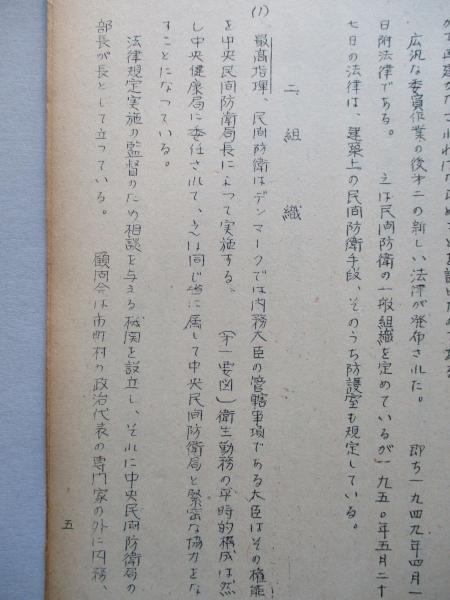 広汎な委員作業の後才二の新しい法律が発布された。　即ち一九四九年四月一
日附法律である。　之は民間防衛の一般組織を定めているが一九五〇年五月二十
七日の法律は、建築上の民間防衛手段、そのうち防護室も規定している。
二　組　織
(1) 最高指揮、民間防衛はデンマークでは内務大臣の管轄事項である大臣はその権能
を中央民間防衛局長によって実施する。（才一要図）衛生勤務の平時的構成は然
し中央健康局に委任されて、之は同じ省に属して中央民間防衛局と緊密な協力をな
すことになっている。
法律規定実施の監督のため相談を与える機関を設立し、それに中央民間防衛局の
部長が長として立っている。　顧問会は市町村の政治代表の専門家の外に内務、
五